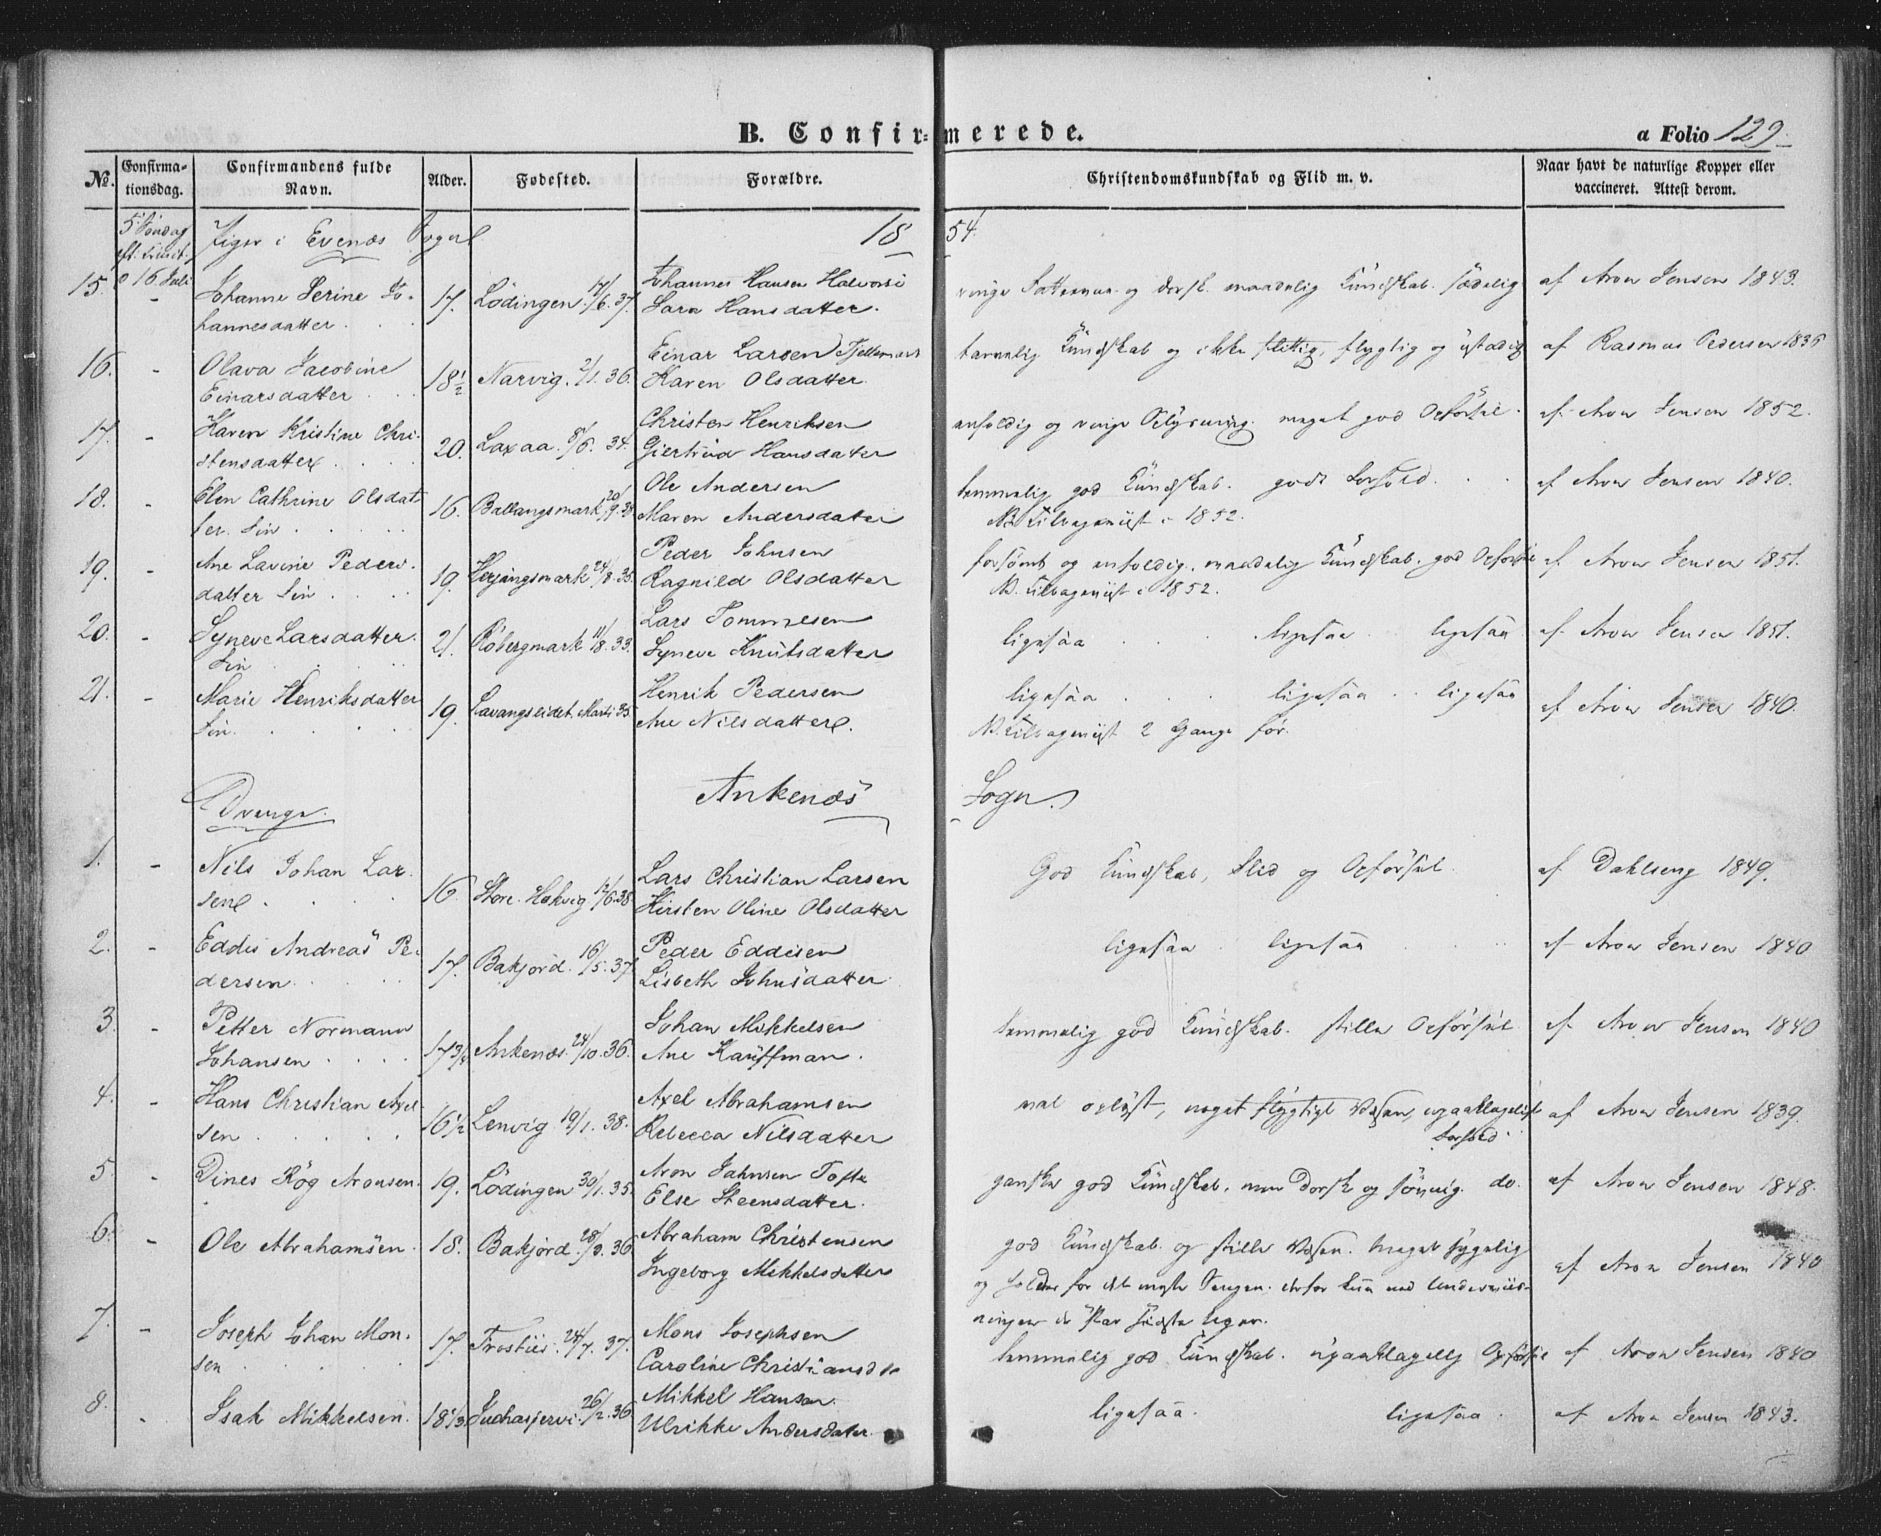 B. Confirmerede.
a Folio 129.
No. Confirmationsdag. Confirmandens fulde Navn. Alder. Fødested. Forældre. Christendomskundskab og Flid m. v. Naar havt de naturlige Kopper eller vaccineret. Attest derom.
5 Søndag eft. Trinit. 16 Juli
Piger i Evenæs Sogn 1854.
15. - Johanne Serine Johannesdatter. 17. Lødingen 17/6. 37. Johannes Hansen Sara Hansdatter. maadelig Kundskab. sædelig af Aron Jensen 1843.
16. - Olava Jacobine Einarsdatter 18½ Narvig. 2/1. 36. Einar Larsen Karen Olsdatter. Kundskab og ikke flittig, flygtig og ustadig af Rasmus Pedersen 1836
17. - Karen Kristine Christensdatter 20. Laxaa. 8/6. 34. Christen Henriksen Giertrud Hansdatter enfoldig og ringe Oplysning. meget god Opførsel. af Aron Jensen 1852.
18. - Elen Cathrine Olsdatter. Fin 16. Ballangsmark 20/9. 38 Ole Andersen Maren Andersdatter temmelig god Kundskab. godt Forhold. af Aron Jensen 1840.
NB. Tilbageviist i 1852.
19. - Ane Lavine Pedersdatter Fin 19. Herjangsmark 24/8. 35. Peder Johnsen Ragnild Olsdatter forsømt og enfoldig. maadelig Kundskab. god Opførsel af Aron Jensen 1851.
NB. Tilbageviist i 1852.
20. - Syneve Larsdatter. Fin 21. Røbergmark 11/8. 33. Lars Tommesen Syneve Knutsdatter ligesaa ligesaa ligesaa af Aron Jensen 1851.
21. - Marie Henriksdatter Fin. 19. Lavangseidet. Marti 35. Henrik Pedersen Ane Nilsdatter. ligesaa ligesaa ligesaa af Aron Jensen 1840.
NB. Tilbageviist 2 Gange før.
Drenge. Ankenæs Sogn.
1. - Nils Johan Larsen 16. Store Hokvig 12/6 38 Lars Christian Larsen Kirsten Oline Olsdatter God Kundskab, Flid og Opførsel. af Dahlseng 1849.
2. - Eddis Andreas Pedersen. 17. Bakjord. 16/5. 37. Peder Eddisen Lisbeth Johnsdatter. ligesaa ligesaa af Aron Jensen 1840
3. - Petter Normann Johansen 17 3/4 Ankenæs. 24/10. 36. Johan Mikkelsen Ane Kauffman. temmelig god Kundskab. stille Opførsel af Aron Jensen 1840
4. - Hans Christian Axelsen 16½ Lenvig 19/1. 38. Axel Abrahamsen Rebecca Nilsdatter vel oplyst, noget flygtigt Væsen, upaaklageligt Forhold. af Aron Jensen 1839.
5. - Dines Røg Aronsen. 19. Lødingen 30/1. 35. Aron Jahnsen Tofte Else Steensdatter. ganske god Kundskab. men dorsk og søvnig. do. af Aron Jensen 1848.
6. - Ole Abrahamsen. 18. Bakjord. 28/8. 36 Abraham Christensen Ingeborg Mikkelsdatter god Kundskab. og stille Væsen. meget sygelig og holder for det meste Sengen. derfor kun med Underviisningen de par sidste Uger. af Aron Jensen 1840
7. - Joseph Johan Monsen 17. 24/7. 37. Mons Josephsen Caroline Christiansd. temmelig god Kundskab. upaaklagelig Opførsel af Aron Jensen 1840
8. - Isak Mikkelsen. 18 1/3 Juchasjervi. 26/2. 36 Mikkel Hansen. Ulrikke Andersdatter. ligesaa. ligesaa. af Aron Jensen 1843.